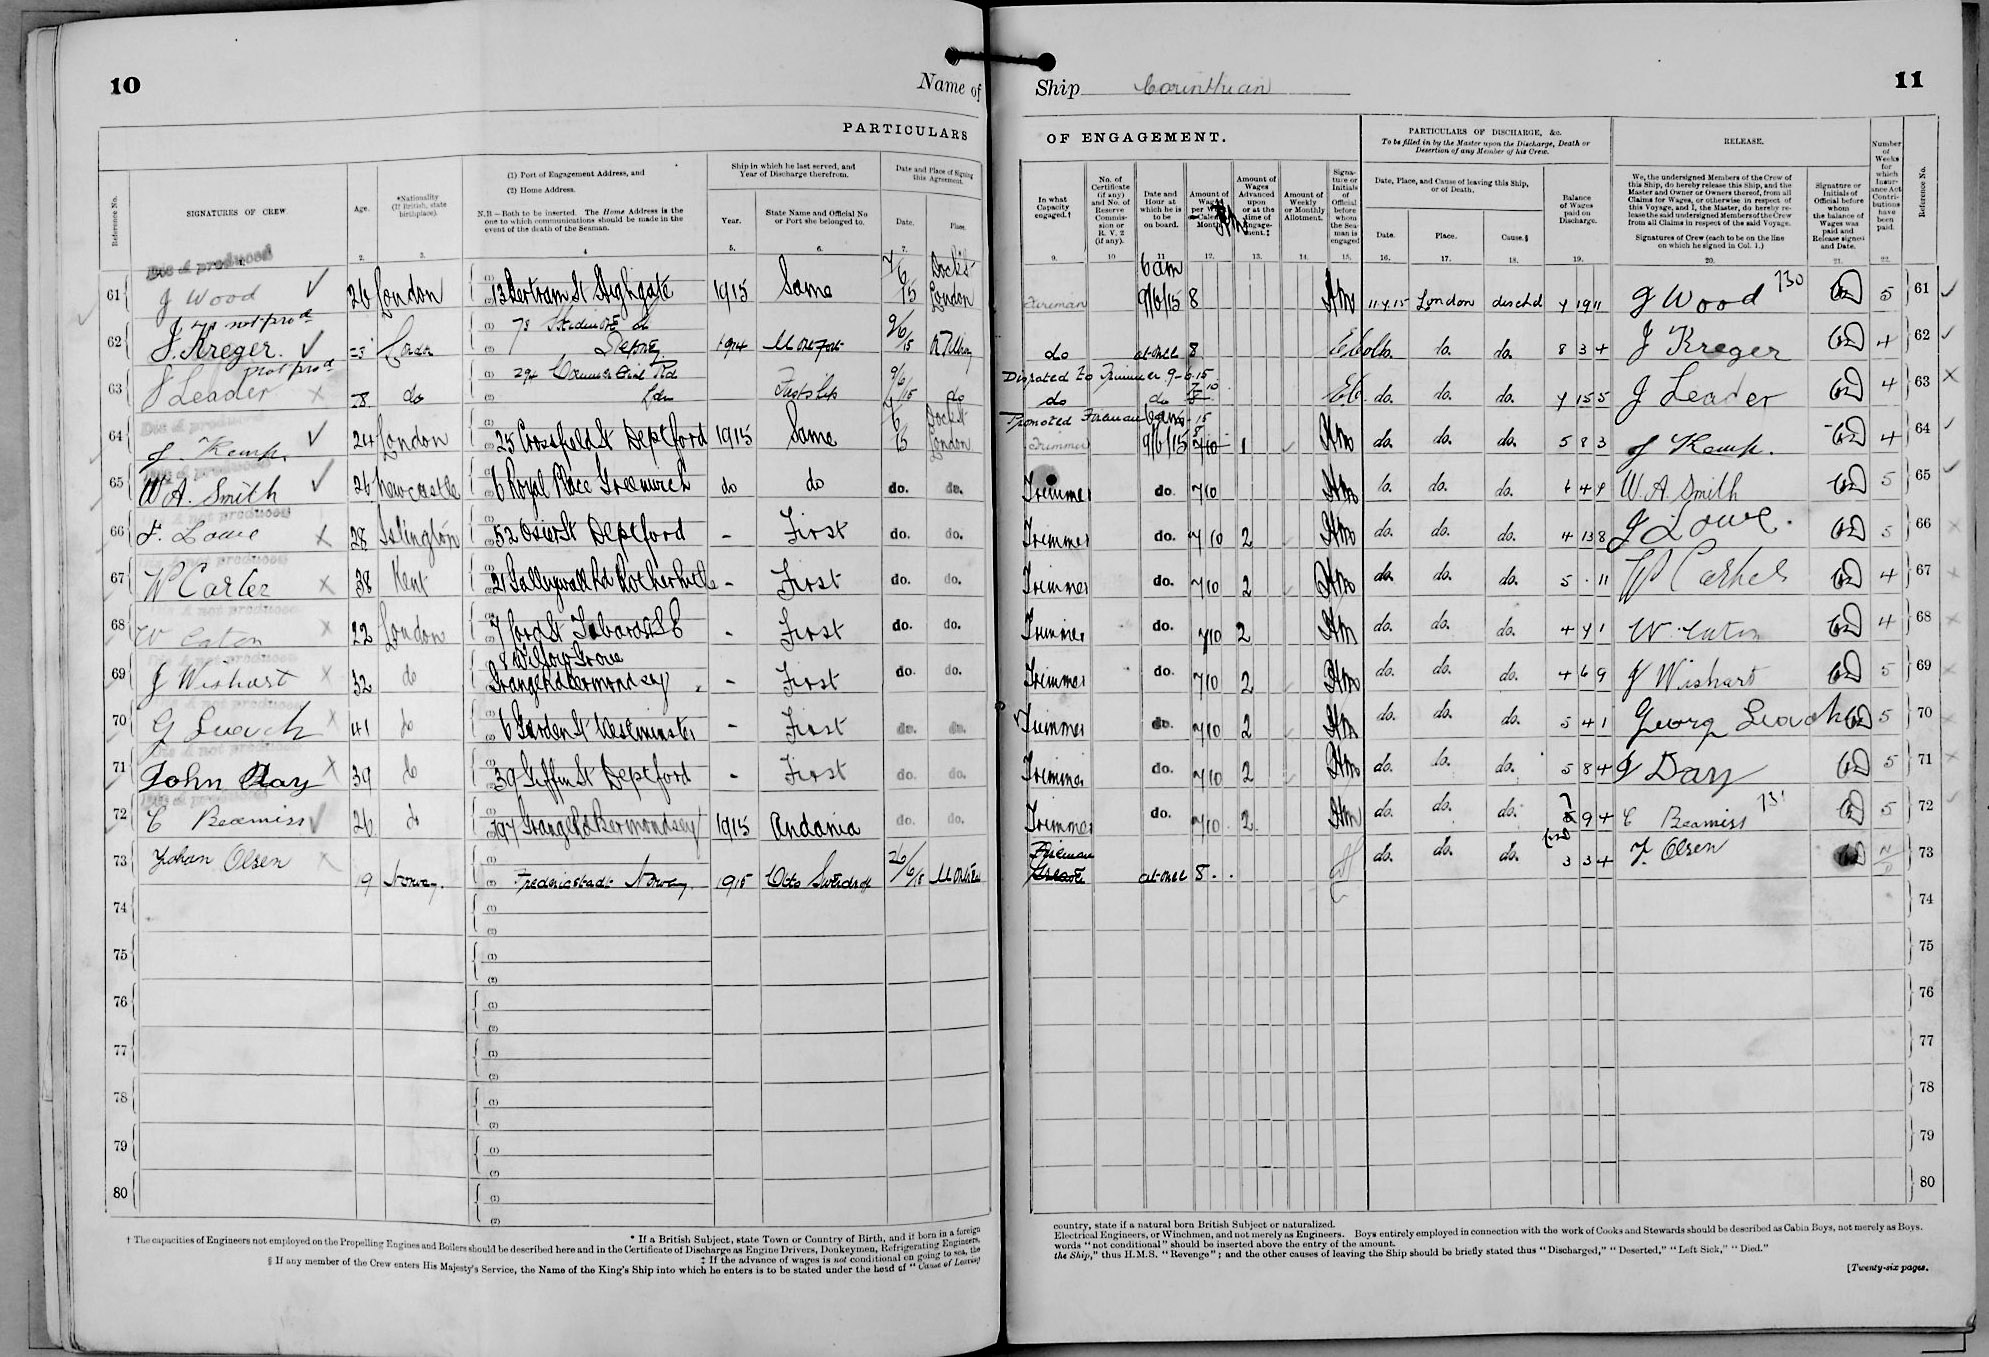 10
Name of
Ship Corinthian
11
PARTICULARS
OF ENGAGEMENT.
PARTICULARS OF DISCHARGE, &c.
To be filled in by the Master upon the Discharge, Death or Desertion of any Member of his Crew.
RELEASE.
Reference No.
SIGNATURES OF CREW
Age.
*Nationality (If British, state birthplace).
(1) Port of Engagement Address, and
(2) Home Address.
N.B.—Both to be inserted. The Home Address is the one to which communications should be made in the event of the death of the Seaman.
Ship in which he last served, and Year of Discharge therefrom.
Year.
State Name and Official No or Port she belonged to.
Date and Place of Signing this Agreement.
Date.
Place.
In what Capacity engaged.†
No. of Certificate (if any) and No. of Reserve Commission or R. V. 2 (if any).
Date and Hour at which he is to be on board.
Amount of Wages per Calendar Month
Amount of Wages Advanced upon or at the time of Engagement.‡
Amount of Weekly or Monthly Allotment.
Signature or Initials of Official before whom the Seaman is engaged
Date, Place, and Cause of leaving this Ship, or of Death.
Date.
Place.
Cause.§
Balance of Wages paid on Discharge.
We, the undersigned Members of the Crew of this Ship, do hereby release this Ship, and the Master and Owner or Owners thereof, from all Claims for Wages, or otherwise in respect of this Voyage, and I, the Master, do hereby release the said undersigned Members of the Crew from all Claims in respect of the said Voyage.
Signatures of Crew (each to be on the line on which he signed in Col. 1.)
Signature or Initials of Official before whom the balance of Wages was paid and Release signed and Date.
Number of Weeks for which Insurance Act Contributions have been paid.
Reference No.
2. 3. 4 5. 6. 7. 9. 10 11 12. 13. 14. 15. 16. 17. 18. 19. 20. 21. 22.
Dis A produced
61 J Wood 26 London 13 Bertram St Highgate 1915 Same 7/6/15 Dock St London Fireman 6am 9/6/15 8 11.7.15 London dischd 7 19 11 J Wood 130 5 61
not prod
62 J. Kreger. Stepney 1914 Montfort 9/6/15 do at once 8 do. do. 8 3 4 J Kreger 4 62
not prod
Disrated to Trimmer 9-6-15
63 J Leader do 294 Commercial Rd Ldn 9/6/15 do do do 7 10 do. do. do. 7 15 5 J Leader 4 63
Promoted Fireman
64 J. Kemp. 24 London 25 Crossfield St Deptford 1915 Same Dock St London Trimmer 6am 9/6/15 7 10 1 do. do. do. 5 8 3 J Kemp. 4 64
65 W.A. Smith 26 Newcastle 6 Royal Place Greenwich do do do. do. Trimmer do. 7 10 do. do. 6 4 9 W. A Smith 5 65
66 J. Lowe 28 Islington 52 Osier St Deptford - First do. do. Trimmer do. 7 10 2 do. do. do. 4 13 8 J Lowe. 5 66
67 W Carter 38 Kent 21 Galleywall Rd Rotherhithe - First do. do. Trimmer do. 7 10 2 do. do. do. 5 . 11 W Carter 4 67
68 W Eaton 22 London 7 Ford St Tabard St SE - First do. do. Trimmer do. 7 10 2 do. do. do. 4 7 1 W. Eaton 4 68
69 J Wishart 32 do 8 Willow Grove Grange Rd Bermondsey - First do. do. Trimmer do. 7 10 2 do. do. do. 4 6 9 J Wishart 5 69
70 G Leach 41 do 6 Garden St Westminster - First do. do. Trimmer do. 7 10 2 do. do. do. 5 4 1 Georg Leach 5 70
71 John Day 39 do 39 Giffin St Deptford - First do. do. Trimmer do. 7 10 2 do. do. do. 5 8 4 J Day 5 71
72 C Beamiss 26 do 197 Grange Rd Bermondsey 1915 Andania do. do. Trimmer do. 7 10 2 do. do. do. 9 4 C Beamiss 131 5 72
73 Johan Olsen 9 Norway. Fredericstadt Norway 1915 Otto Sverdrup 26/6/15 Montreal Fireman at once 8 . . do. do. do. 3 3 4 J. Olsen 73
74 74
75 75
76 76
77 77
78 78
79 79
80 80
† The capacities of Engineers not employed on the Propelling Engines and Boilers should be described here and in the Certificate of Discharge as Engine Drivers, Donkeymen, Refrigerating Engineers,
* If a British Subject, state Town or Country of Birth, and if born in a foreign
‡ If the advance of wages is not conditional on going to sea, the
§ If any member of the Crew enters His Majesty's Service, the Name of the King's Ship into which he enters is to be stated under the head of "Cause of Leaving
country, state if a natural born British Subject or naturalized.
Electrical Engineers, or Winchmen, and not merely as Engineers. Boys entirely employed in connection with the work of Cooks and Stewards should be described as Cabin Boys, not merely as Boys.
words "not conditional" should be inserted above the entry of the amount.
the Ship," thus H.M.S. "Revenge"; and the other causes of leaving the Ship should be briefly stated thus "Discharged," "Deserted," "Left Sick," "Died."
[Twenty-six pages.